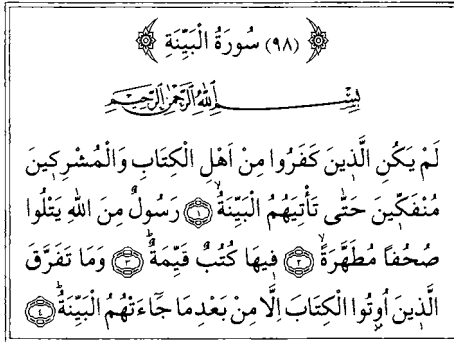 (٩٨) سُورَةُ الْبَيِّنَةِ
بِسْمِ اللّٰهِ الرَّحْمٰنِ الرَّحِيمِ
لَمْ يَكُنِ الَّذِينَ كَفَرُوا مِنْ اَهْلِ الْكِتَابِ وَالْمُشْرِكِينَ
مُنْفَكِّينَ حَتّٰى تَأْتِيَهُمُ الْبَيِّنَةُۙ ﴿١﴾ رَسُولٌ مِنَ اللّٰهِ يَتْلُوا
صُحُفاً مُطَهَّرَةًۙ ﴿٢﴾ فِيهَا كُتُبٌ قَيِّمَةٌؕ ﴿٣﴾ وَمَا تَفَرَّقَ
الَّذِينَ اُو۫تُوا الْكِتَابَ اِلَّا مِنْ بَعْدِمَا جَٓاءَتْهُمُ الْبَيِّنَةُؕ ﴿٤﴾